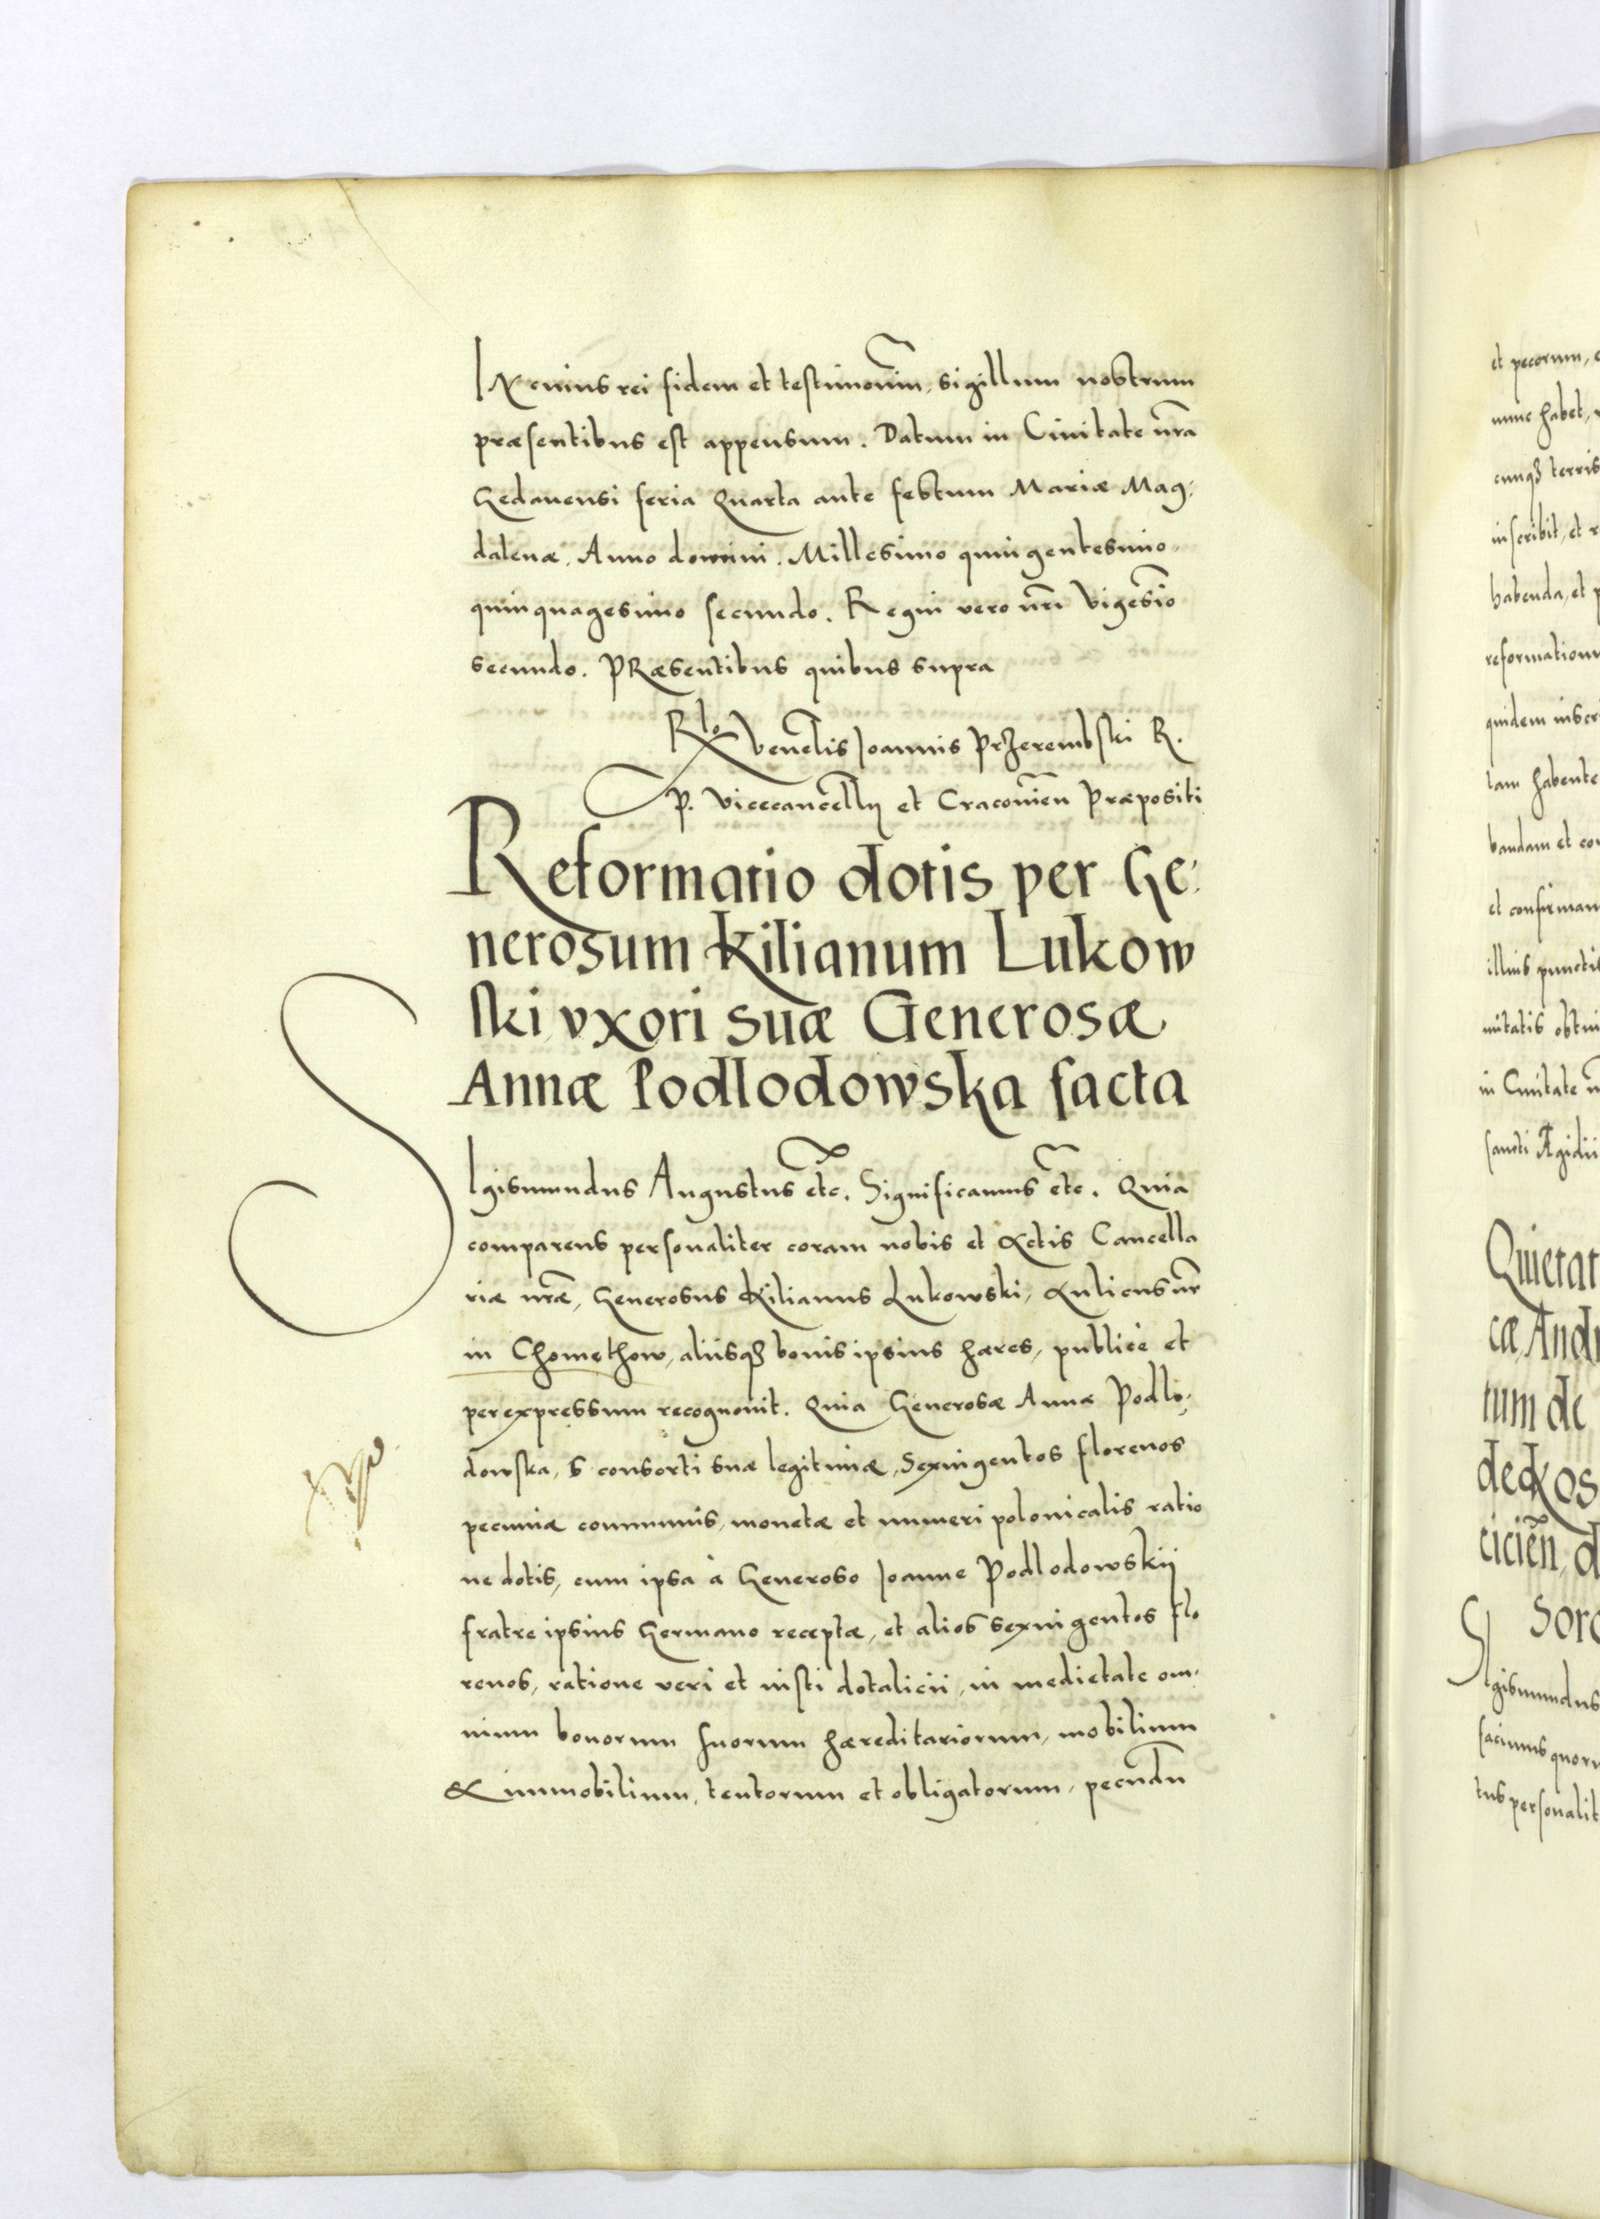 IN cuius rei fidem et testimoniũ, sigillum nostrum
præsentibus est appensum. Datum in Ciuitate nr̃a
Gedanensi feria Quarta ante festum Mariæ Mag:
dalenæ. Anno domini. Millesimo quingentesimo.
quinquagesimo secundo. Regni vero nr̃i Vigesĩo
secundo. PRæsentibus quibus supra
Rlo Venẽlis Joannis Przerembski R.
P. Vicecancẽllij et Cracoviẽn Præpositi
Reformatio dotis per Ge:
nerosum Kilianum Lukow
ski, vxori suæ Generosæ
Annæ Podlodowska facta
SIgismundus Augustus etc. Significamus etc. Quia
comparens personaliter coram nobis et Actis Cancella
riæ nr̃æ, Generosus Kilianus Lukowski, Aulicus nr̃
in Chomethow, aliisqȝ bonis ipsius hæres, publicè et
per expressum recognouit. Quia Generosæ Annæ Podlo,
dowska, consorti suæ legitimæ, Sexingentos florenos
pecuniæ communis, monetæ et numeri polonicalis ratio
ne dotis, cum ipsa à Generoso Joanne Podlodowskij
fratre ipsius Germano receptæ, et alios sexingentos flo
renos, ratione veri et iusti dotalicii, in medietate om,
nium bonorum suorum hæreditariorum, mobilium
& immobilium, tentorum et obligatorum, pecudũ
et pecorum,
nunc habet,
cunqȝ terris
inscribit, et
habenda, et
reformation
quidem inscri
tam habente
bandam et co
et confirman
illius puncti
nitatis obti
in Ciuitate
sancti Ægidii
Quietat
cæ, And
tum de
de Kos
ciciẽn, d
Soro
SIgismundus
facimus quor
tus personalit